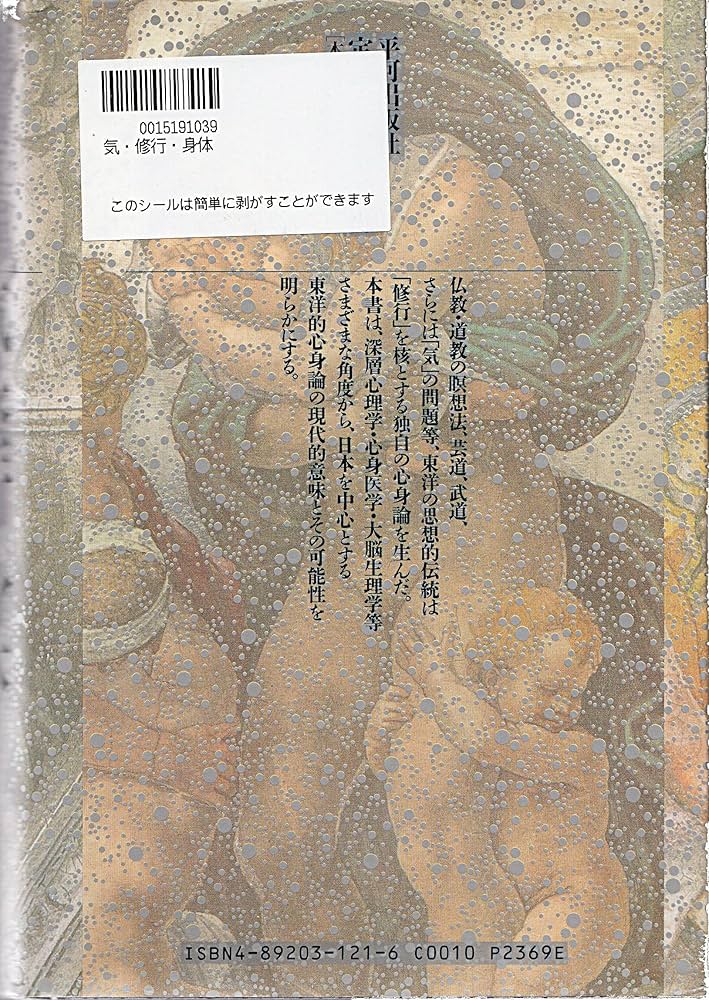 平河出版社
0015191039
気・修行・身体
このシールは簡単に剥がすことができます
仏教・道教の瞑想法、芸道、武道、
さらには「気」の問題等、東洋の思想的伝統は
「修行」を核とする独自の心身論を生んだ。
本書は、深層心理学・心身医学・大脳生理学等
さまざまな角度から、日本を中心とする
東洋的心身論の現代的意味とその可能性を
明らかにする。
ISBN4-89203-121-6 C0010 P2369E